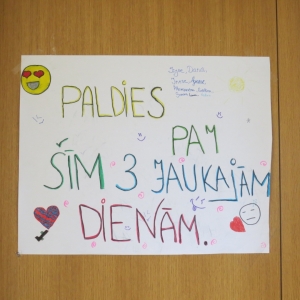 PALDIES
PAR
ŠĪM 3 JAUKAJĀM
DIENĀM.